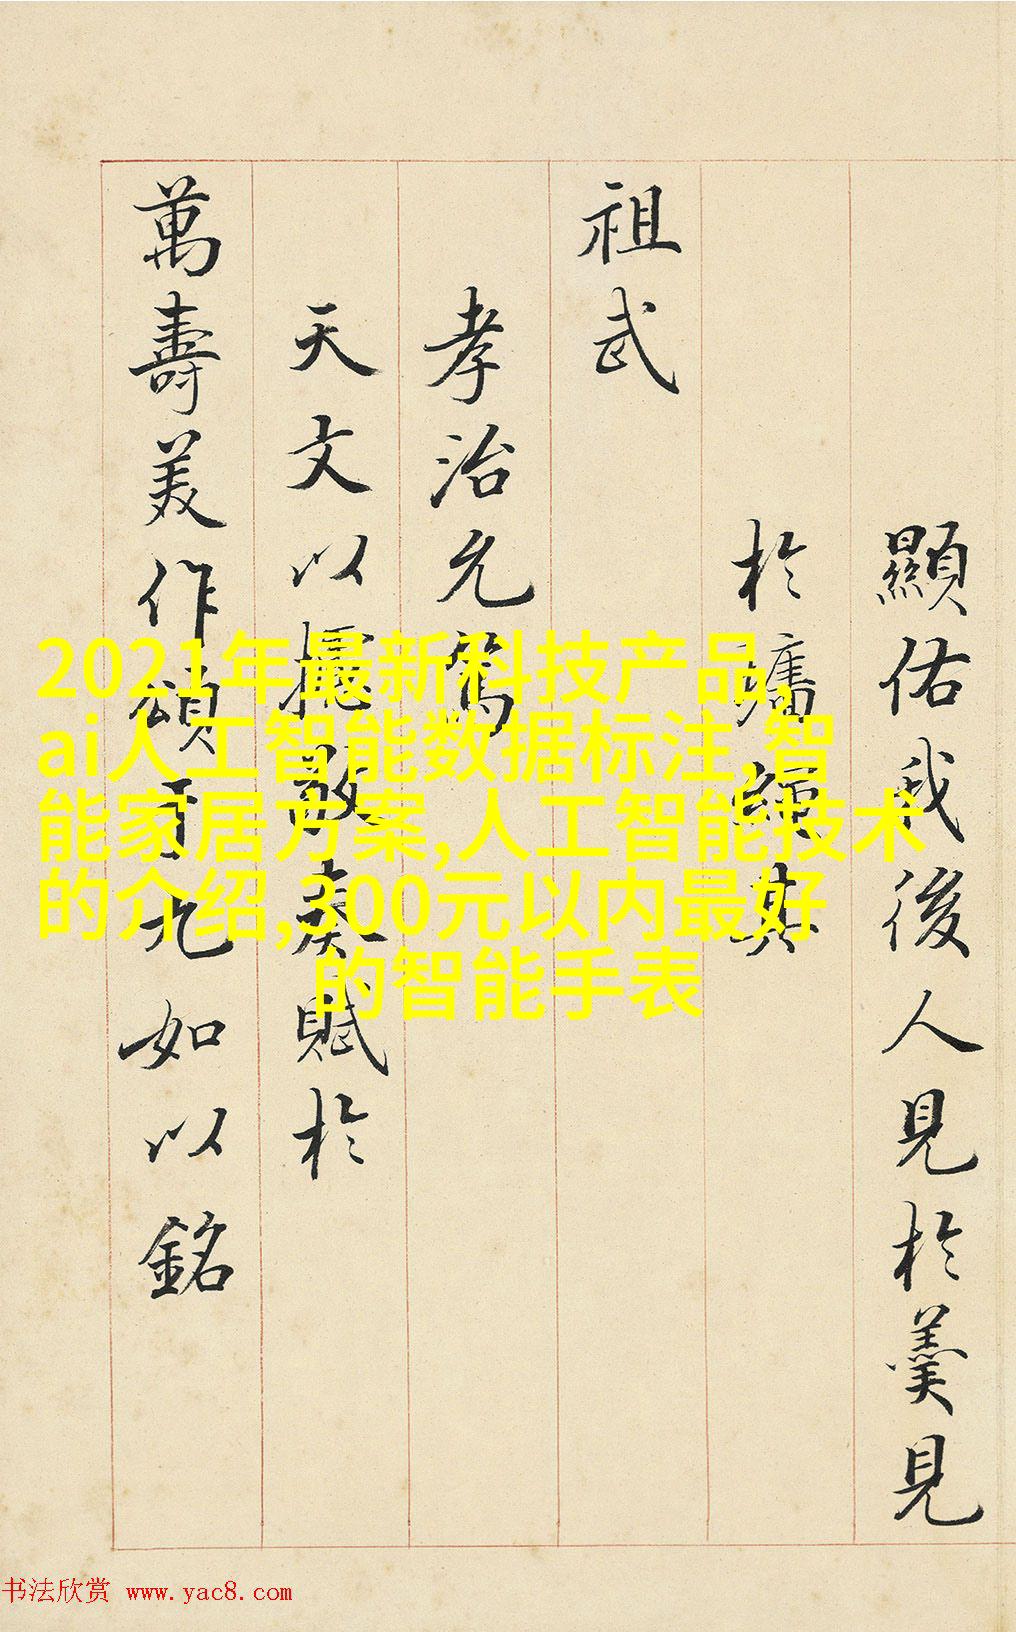 顯佑我後人見於羹見
於牆歸其
祖武
孝治允篤
天文以摅敬奏賦於
萬壽美作頌于九如以銘
2021年最新科技产品,
ai人工智能数据标注,智
能家居方案,人工智能技术
的介绍,300元以内最好
的智能手表
书法欣赏 www.yac8.com